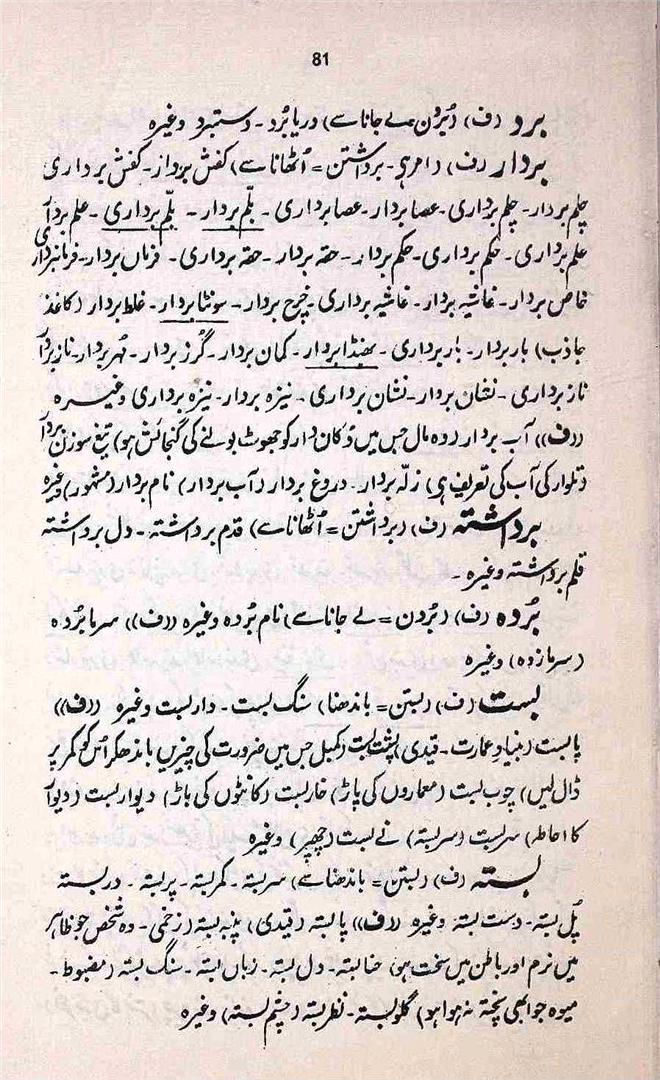 81
برد (ف) (بُردن=لے جانا سے) دریا بُرد ۔ دستبرد وغیرہ
بردار (ف) (امر ہی ۔ برداشتن = اُٹھانا سے) کفش بردار ۔ کفش برداری
چلم بردار ۔ چلم برداری ۔ عصا بردار ۔ عصا برداری ۔ بلّم بردار ۔ بلّم برداری ۔ علم بردار
علم برداری ۔ حکم برداری ۔ حکم بردار ۔ حقہ بردار ۔ حقہ برداری ۔ فرماں بردار ۔ فرمانبرداری
خاص بردار ۔ غاشیہ بردار ۔ غاشیہ برداری ۔ چرخ بردار ۔ سونٹا بردار ۔ غلط بردار (کاغذ
جاذب) باربردار ۔ باربرداری ۔ بھنڈا بردار ۔ کمان بردار ۔ گُرز بردار ۔ مُہر بردار ۔ ناز بردار
ناز برداری ۔ نشان بردار ۔ نشان برداری ۔ نیزہ بردار ۔ نیزہ برداری وغیرہ
((ف)) آب بردار (وہ مال جس میں دُکان دار کو جھوٹ بولنے کی گنجائش ہو) تیغ سوزن بردار
(تلوار کی آب کی تعریف ہی) زلّہ بردار ۔ دروغ بردار (آب بردار) نام بردار (مشہور) وغیرہ
برداشتہ (ف) (برداشتن = اُٹھانا سے) قدم برداشتہ ۔ دل برداشتہ
قلم برداشتہ وغیرہ ۔
بُردہ (ف) (بُردن = لے جانا سے) نام بُردہ وغیرہ ((ف)) سرما بُردہ
(سرما زدہ) وغیرہ
بست (ف) (بستن = باندھنا) سنگ بست ۔ داربست وغیرہ ((ف))
پا بست (بنیادِ عمارت ۔ قیدی) پشت بست (کمبل جس میں ضرورت کی چیزیں باندھ کر اُس کو کمر پر
ڈال لیں) چوب بست (معماروں کی پاڑ) خاربست (کانٹوں کی باڑ) دیوار بست (دیوار
کا احاطہ) سربست (سربستہ) نے بست (چھپر) وغیرہ
بستہ (ف) (بستن = باندھنا سے) سربستہ ۔ کمربستہ ۔ پربستہ ۔ دربستہ
پُل بستہ ۔ دست بستہ وغیرہ ((ف)) پا بستہ (قیدی) پنبہ بستہ (زخمی ۔ وہ شخص جو ظاہر
میں نرم اور باطن میں سخت ہو) حنا بستہ ۔ دل بستہ ۔ زباں بستہ ۔ سنگ بستہ (مضبوط ۔
میوہ جو ابھی پختہ نہ ہوا ہو) گلو بستہ ۔ نظر بستہ (چشم بستہ) وغیرہ